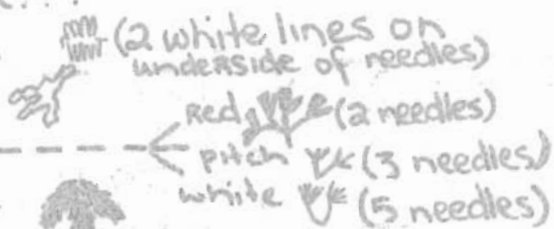 (2 white lines on
underside of needles)
Red (2 needles)
pitch (3 needles)
white (5 needles)